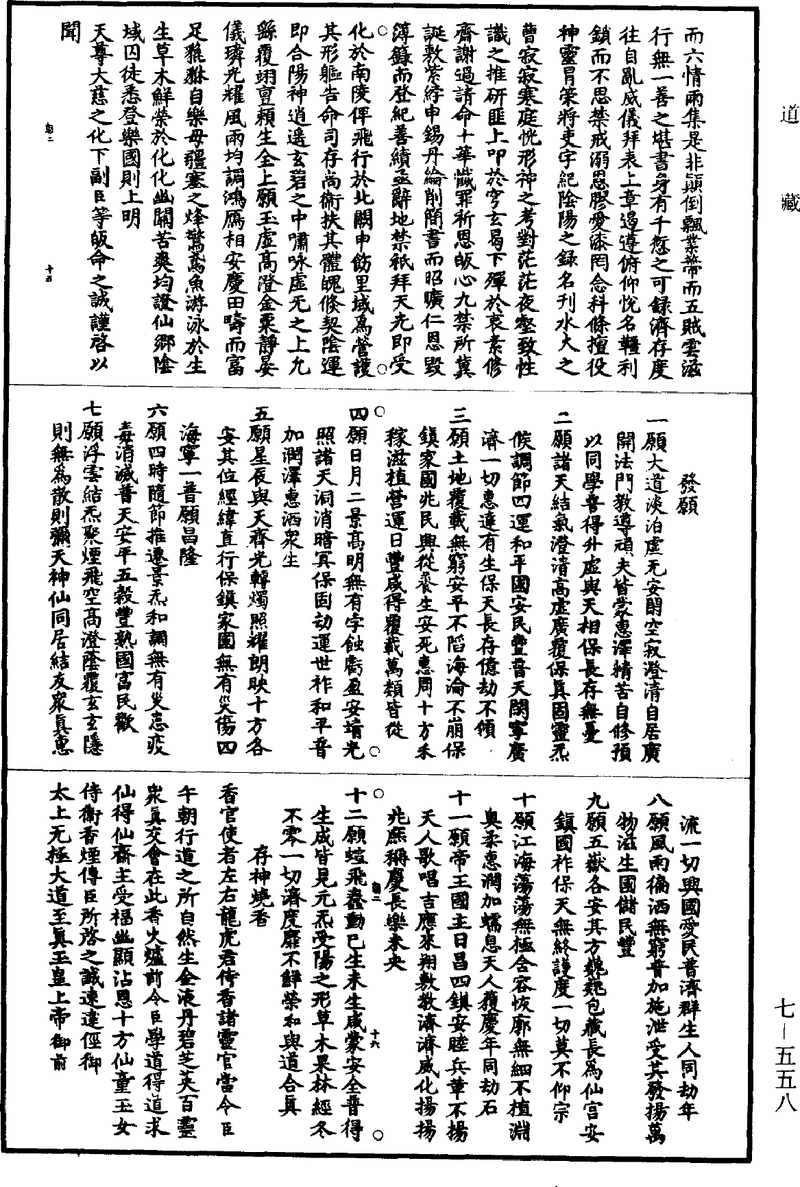 道藏
而六情雨集是非顛倒飄業帶而五賊雲滋
行無一善之堪書身有千愆之可録濟存度
往自亂威儀拜表上章遏遵俯仰恱名韁利
鎖而不思禁戒溺恩膠愛漆罔念科條擅役
神靈冐策將吏字紀陰陽之録名刊水火之
曹寂寂寒庭恍形神之考對茫茫夜壑致性
識之推研匪上叩於穹玄曷下殫於衷素修
齋謝過請命十華懴罪祈恩皈心九禁所冀
誕敷紫綍申錫丹綸削簡書而昭曠仁恩毀
簿録而登紀善績丞辭地禁秖拜天光即受
化於南陵俾飛行於北闕申飭里域爲營護
其形軀告命司存尚衞扶其體魄倏契隂運
即合陽神逍遥玄碧之中嘯咏虚无之上允
繇覆翊亶頼生全上願玉虚高澄金粟靜晏
儀璘光耀風雨均調鴻鴈相安慶田疇而富
足雞豚自樂毋疆塞之烽驚鳶魚游泳於生
生草木鮮榮於化化幽關苦爽均證仙鄉陰
域囚徒悉登樂國則上明
天尊大慈之化下副臣等皈命之誠謹啓以
聞
發願
一願大道淡泊虚无安閑空寂澄清自居廣
開法門教導頑夫皆蒙惠澤精苦自修預
以同學普得升虚與天相保長存無憂
二願諸天結氣澄清高虚廣覆保真固靈炁
候調節四運和平國安民豐普天閑寧廣
濟一切惠逮有生保天長存億劫不傾
三願土地覆載無窮安平不䧟海淪不崩保
鎮家國兆民興從養生安死惠周十方禾
稼滋植營運日豐咸得覆載萬類皆從
四願日月二景高明無有孛蝕虧盈安靖光
照諸天洞消暗冥保固動運世祚和平普
加潤澤惠洒衆生
五願星辰與天齊光轉燭照耀朗映十方各
安其位經緯直行保鎮家國無有災傷四
海寧一普願昌隆
六願四時隨節推遷景炁和調無有災恙疫
毒消滅普天安平五穀豐熟國富民歡
七願浮雲結炁聚煙飛空高澄蔭覆玄玄隱
則無爲散則彌天神仙同居結友衆真惠
流一切興國愛民普濟群生人同劫年
八願風雨徧洒無窮普加施泄受其發揚萬
物滋生國儲民豐
九願五嶽各安其方巍巍包藏長爲仙宫安
鎮國祚保天無終護度一切莫不仰宗
十願江海蕩蕩無極含容恢廓無細不植淵
奥柔惠潤加蠕息天人獲慶年同劫石
十一願帝王國主日昌四鎮安睦兵革不揚
天人歌唱吉應來翔敷教濟濟威化揚揚
兆庶稱慶長樂未央
十二願蝖飛蠢動已生未生咸蒙安全普得
生成皆見元炁受陽之形草木果林經冬
不零一切濟度靡不鮮榮和與道合真
存神燒香
香官使者左右龍虎君侍香諸靈官當令臣
午朝行道之所自然生金液丹碧芝英百靈
衆真交會在此香火爐前令臣學道得道求
仙得仙齋主受福幽顯沾恩十方仙童玉女
侍衞香煙傳臣所啓之誠速達徑御
太上无極大道至真玉皇上帝御前
七－五五八